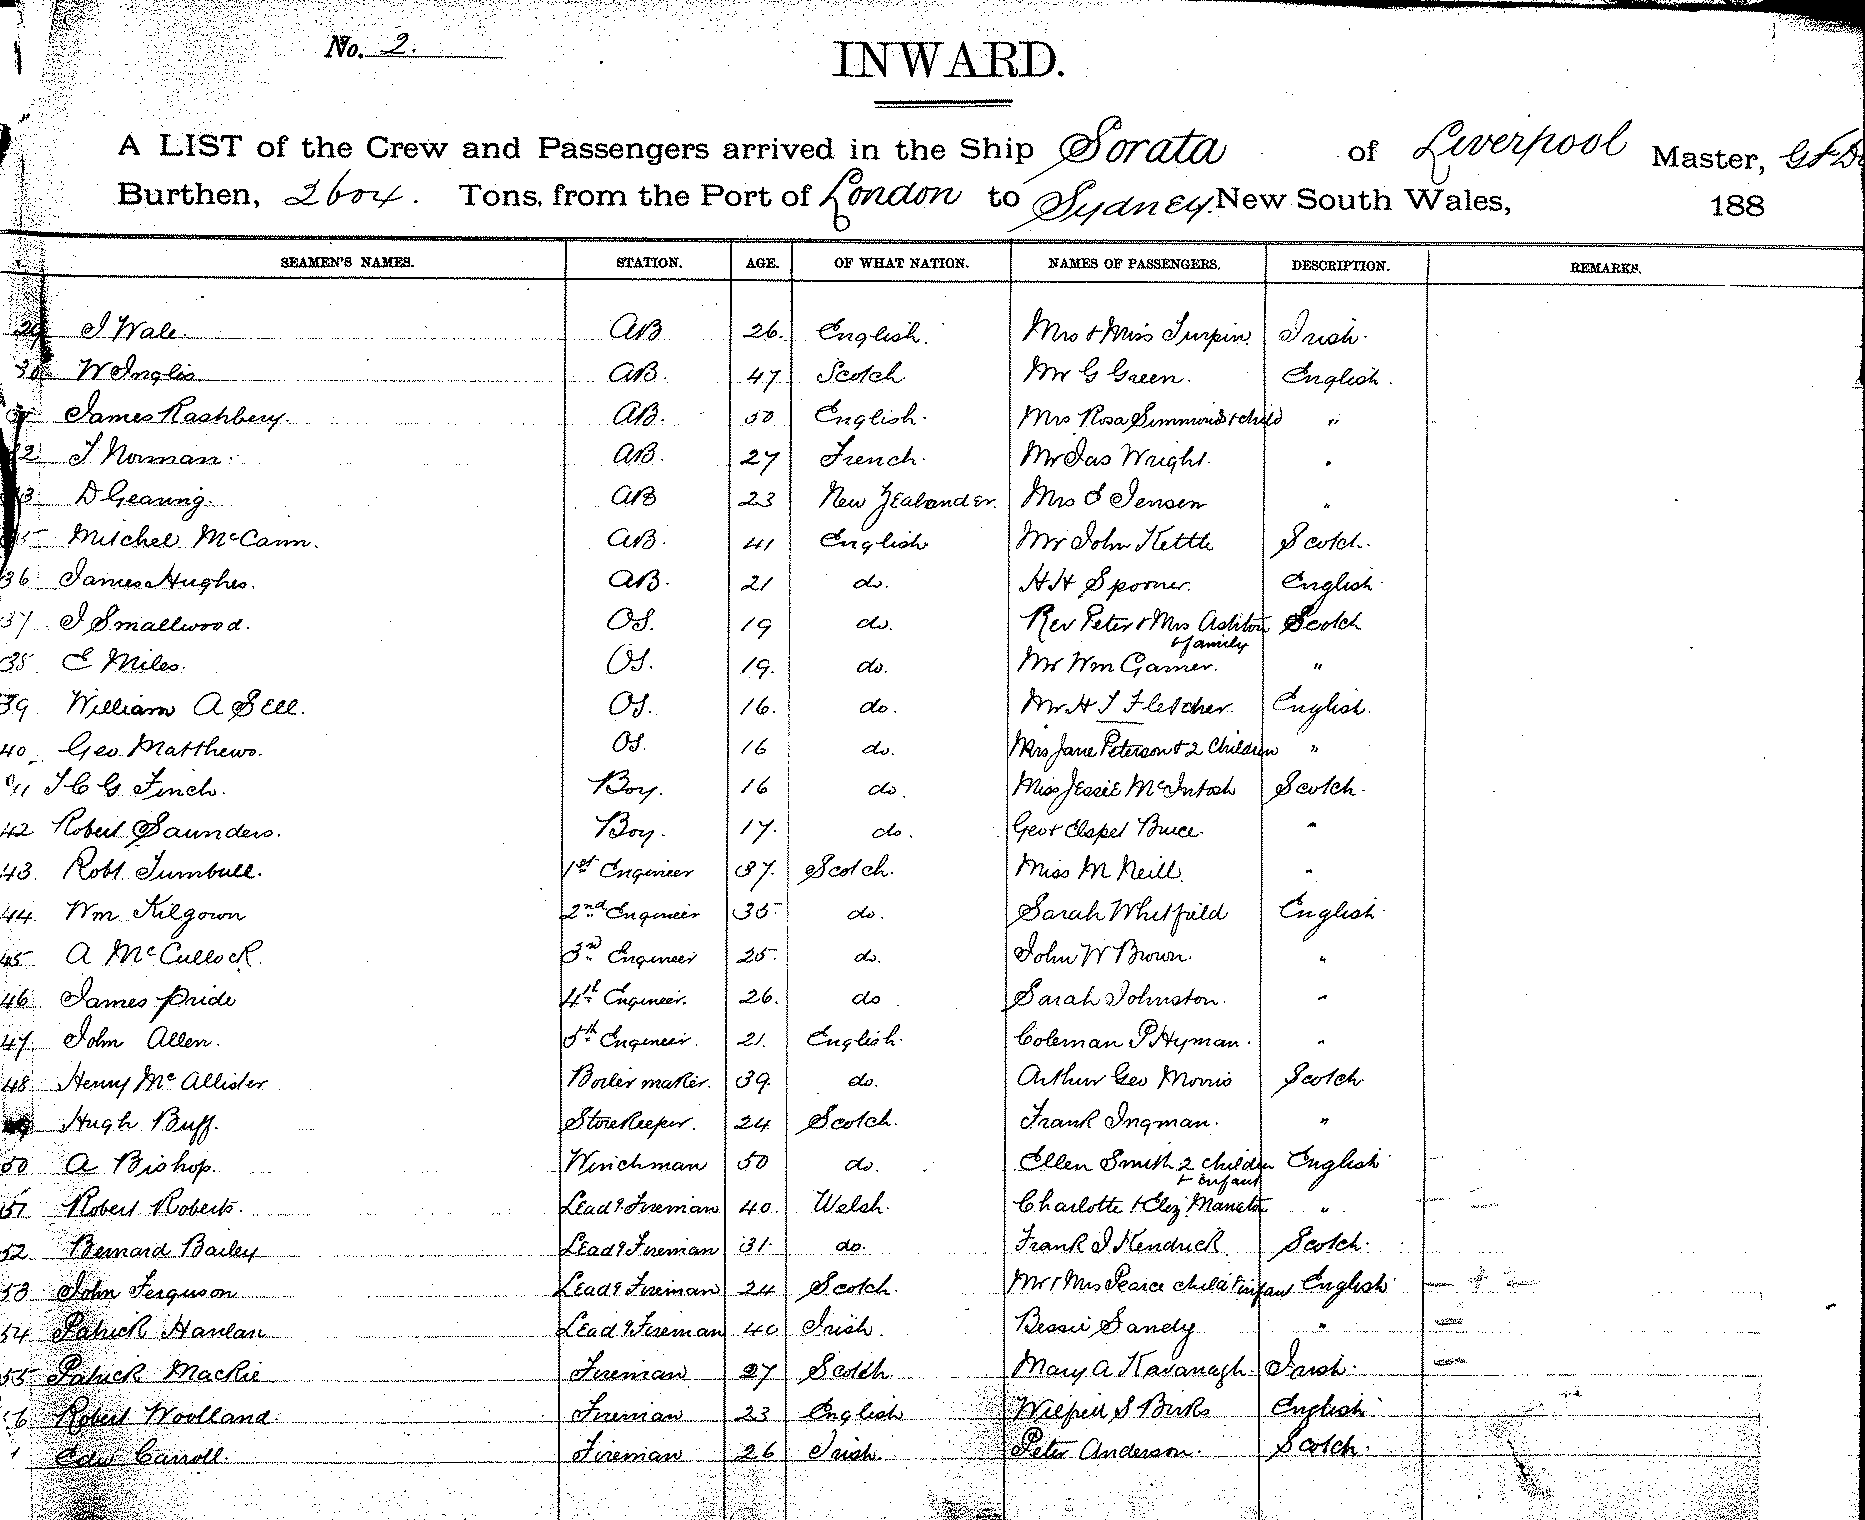 No. 2.
INWARD.
A LIST of the Crew and Passengers arrived in the Ship Sorata of Liverpool Master,
Burthen, 2604. Tons, from the Port of London to Sydney New South Wales, 188
SEAMEN'S NAMES. STATION. AGE. OF WHAT NATION. NAMES OF PASSENGERS. DESCRIPTION. REMARKS.
29 J Wale. AB 26. English. Mrs & Miss Turpin. Irish.
30 W Inglis AB. 47 Scotch Mr G Green. English.
James Rashbery. AB. 50 English. Mrs Rosa Simmonds & child "
32 J Norman. AB. 27 French. Mr Jas Wright. "
33 D Gearing. AB 23 New Zealander. Mrs S Jensen "
35 Mitchel McCann. AB. 41 English Mr John Kettle Scotch.
36 James Hughes. AB. 21 do. H H Spooner. English
37 J Smallwood. OS. 19 do. Rev Peter & Mrs Ashton & family Scotch
35 E Miles. OS. 19. do. Mr Wm Garner. "
39 William A Sell. OS. 16. do. Mr H J Fletcher. English.
40 Geo Matthews. OS. 16 do. Mrs Jane Peterson & 2 Children "
41 J C G Finch. Boy. 16 do. Miss Jessie McIntosh Scotch.
42 Robert Saunders. Boy. 17. do. Geo & Elspet Bruce. "
43. Robt Turnbull. 1st Engineer 37. Scotch. Miss M Neill. "
44. Wm Kilgown 2nd Engineer 35 do. Sarah Whitfield English
45 A McCullock. 3rd Engineer 25. do. John W Brown. "
46 James Pride 4th Engineer. 26. do Sarah Johnston. "
47. John Allen. 5th Engineer. 21. English. Coleman P Hyman. "
48 Henry McAllister Boiler maker. 39. do. Arthur Geo Morris Scotch
Hugh Buff. Storekeeper. 24 Scotch. Frank Ingman. "
50 A Bishop. Winchman 50 do. Ellen Smith 2 children & infant English
51 Robert Roberts. Leadg Fireman 40. Welsh. Charlotte & Eliz "
52 Bernard Bailey Leadg Fireman 31. do. Frank J Kendrick Scotch.
53 John Ferguson Leadg Fireman 24 Scotch. Mr & Mrs Pearce child & infant English
54 Patrick Hanlan Leadg Fireman 40 Irish. Bessie Sandy "
55 Patrick Mackie Fireman 27 Scotch Mary A Kavanagh Irish.
56 Robert Woolland Fireman 23 English Wilfred S Birks English
Edw Carroll. Fireman 26 Irish. Peter Anderson. Scotch.